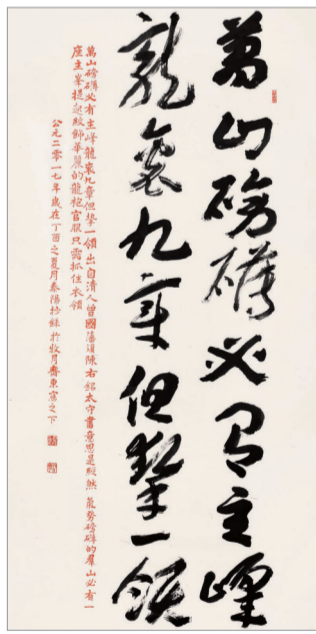 萬山磅礴必有主峰
龍袞九章但挈一領
萬山磅礴必有主峰龍袞九章但挈一領出自清人曾國藩復陳右銘太守書意思是縱然氣勢磅礴的羣山必有一
座主峯提起紋飾華麗的龍袍官服只需抓住衣領
公元二零一七年歲在丁酉之夏月泰陽抄錄於牧月齋東窗之下